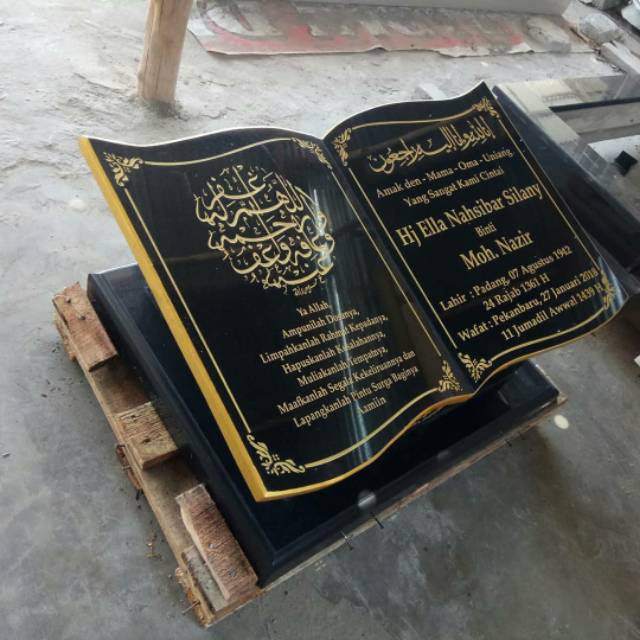 Ya Allah
Ampunilah Dosanya,
Limpahkanlah Rahmat Kepadanya,
Hapuskanlah Kesalahannya,
Muliakanlah Tempatnya,
Maafkanlah Segala Kekeliruannya dan
Lapangkanlah Pintu Surga Baginya
Aamiin
انا لله وانا اليه راجعون
Amak den - Mama - Oma - Uniang
Yang Sangat Kami Cintai
Hj Ella Nahsibar Silany
Binti
Moh. Nazir
Lahir : Padang, 07 Agustus 1942
24 Rajab 1361 H
Wafat : Pekanbaru, 27 Januari 2018
11 Jumadil Awwal 1439 H